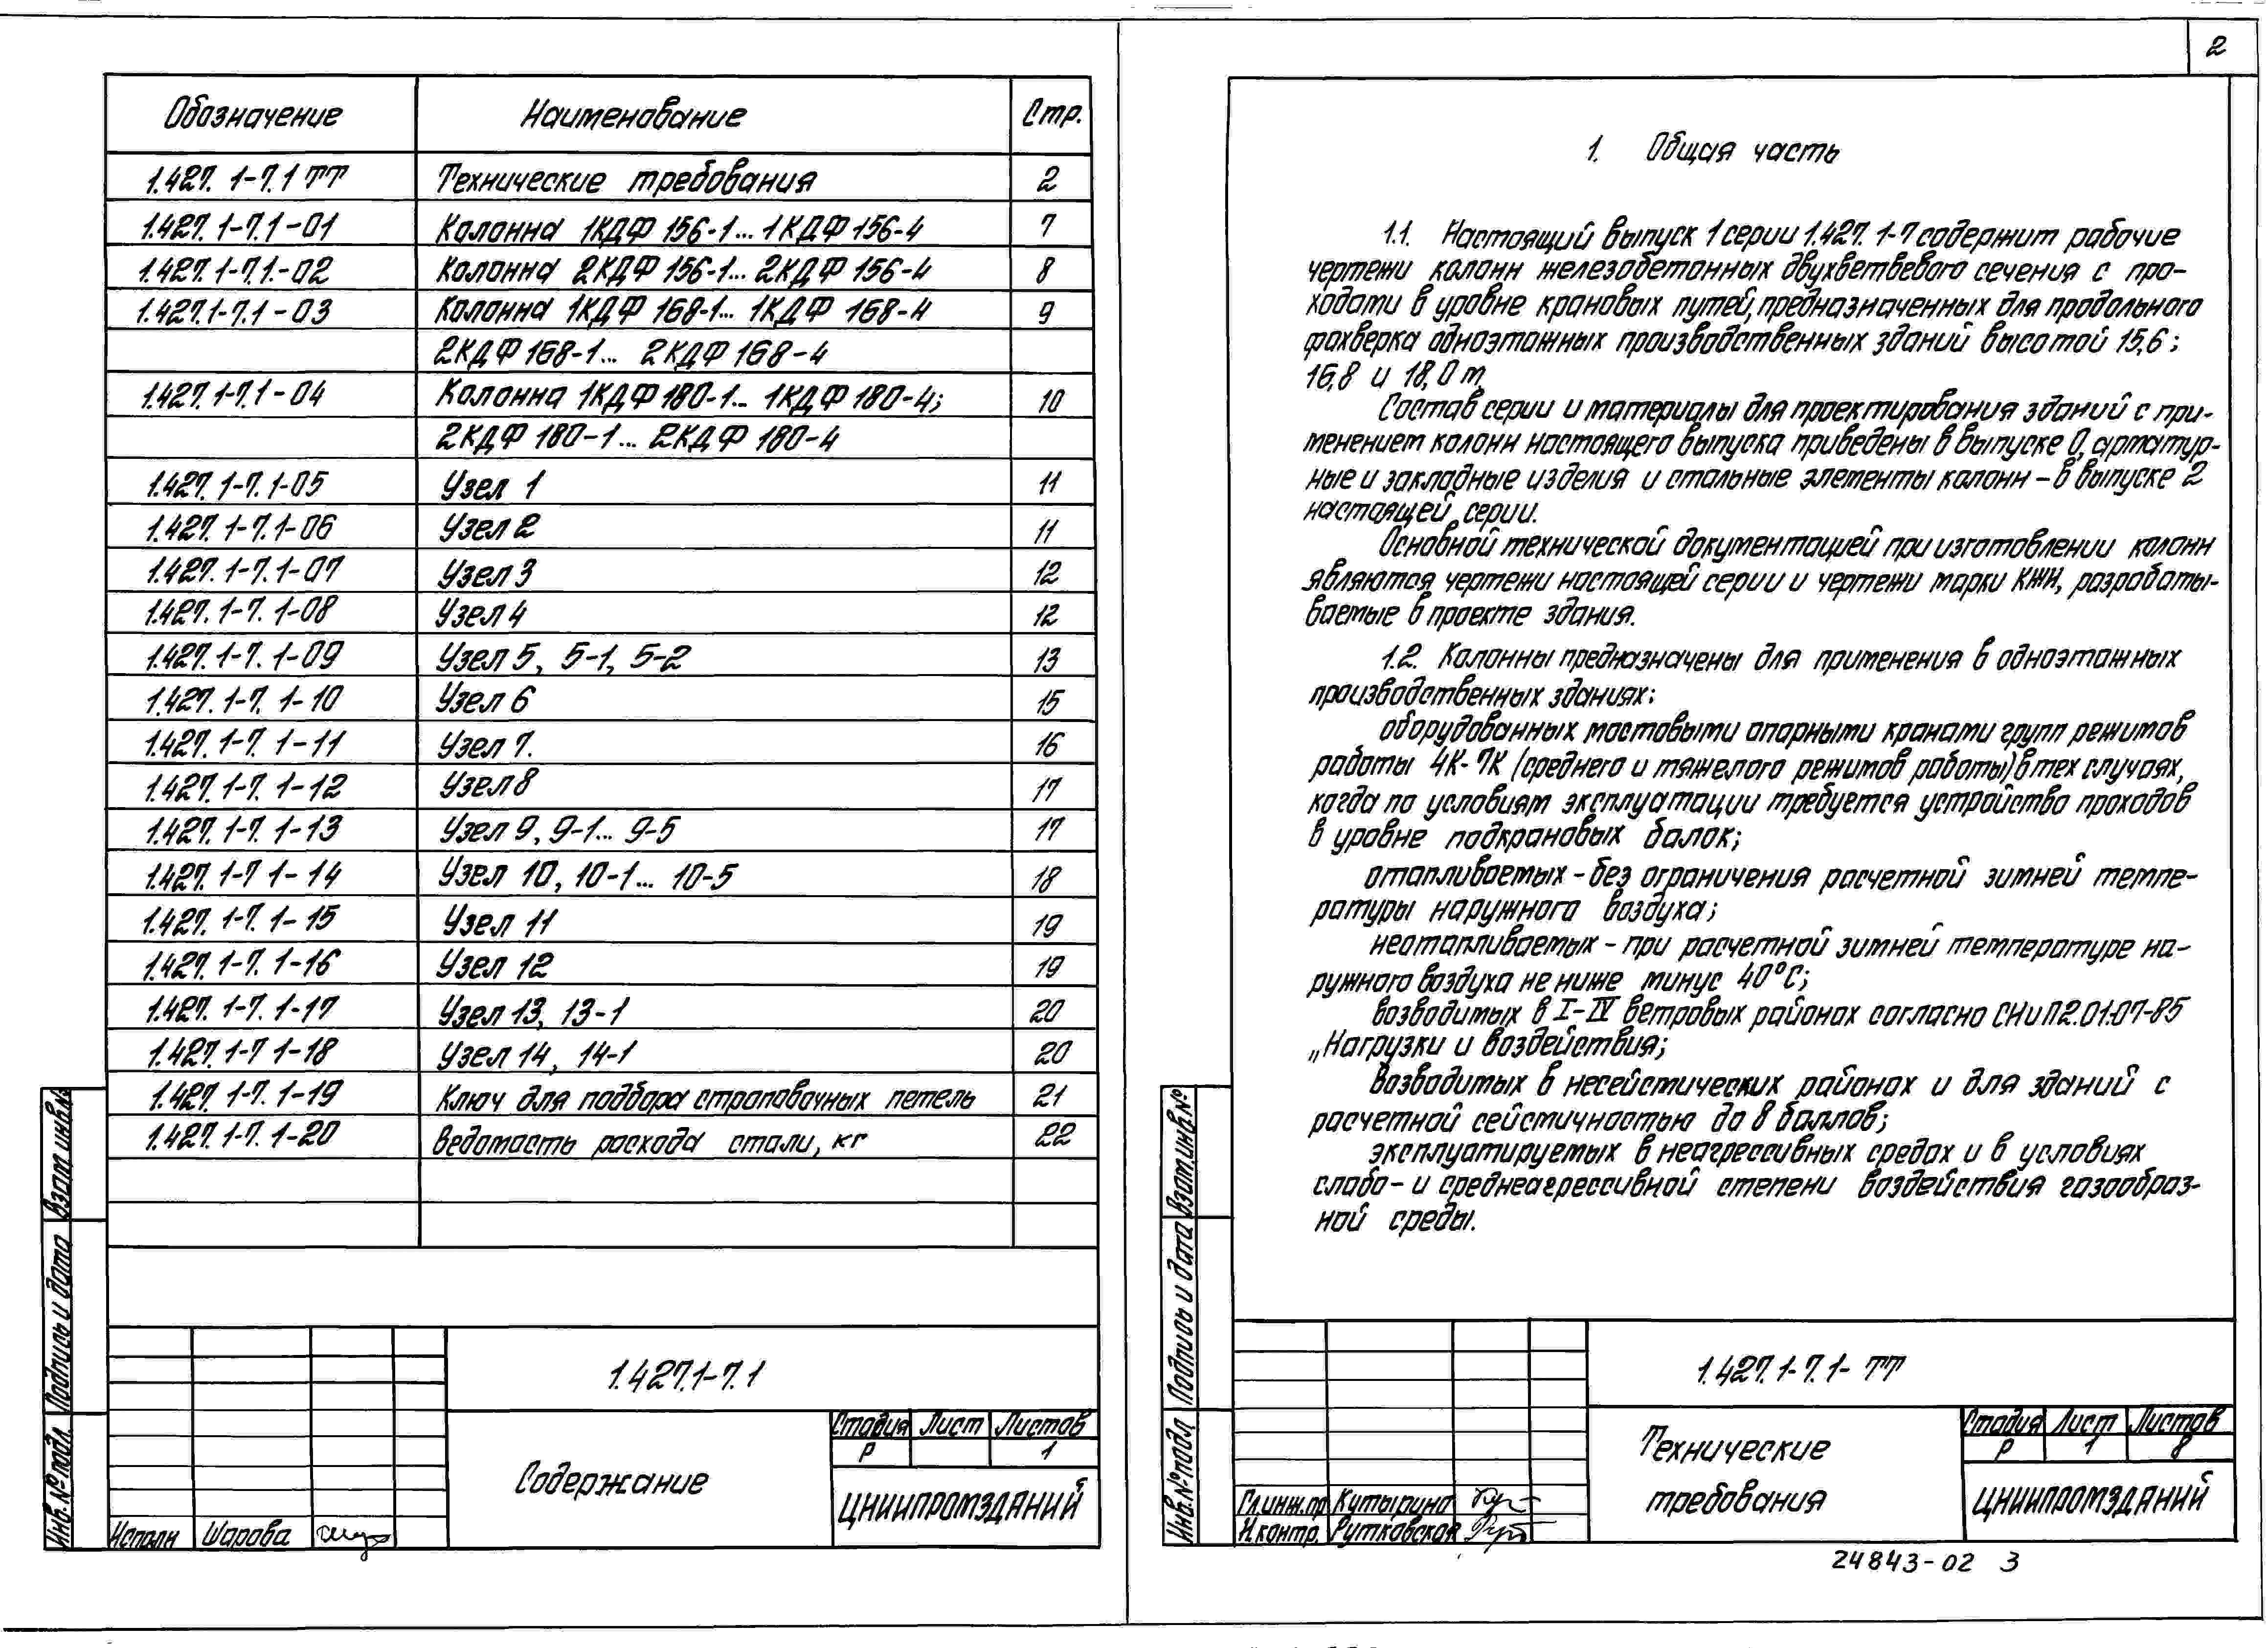 Обозначение Наименование Стр.
1.427.1-7.1 ТТ Технические требования 2
1.427.1-7.1-01 Колонна 1КДФ 156-1... 1КДФ 156-4 7
1.427.1-7.1.-02 Колонна 2КДФ 156-1... 2КДФ 156-4 8
1.427.1-7.1-03 Колонна 1КДФ 168-1... 1КДФ 168-4 9
2КДФ 168-1... 2КДФ 168-4
1.427.1-7.1-04 Колонна 1КДФ 180-1... 1КДФ 180-4; 10
2КДФ 180-1... 2КДФ 180-4
1.427.1-7.1-05 Узел 1 11
1.427.1-7.1-06 Узел 2 11
1.427.1-7.1-07 Узел 3 12
1.427.1-7.1-08 Узел 4 12
1.427.1-7.1-09 Узел 5, 5-1, 5-2 13
1.427.1-7.1-10 Узел 6 15
1.427.1-7.1-11 Узел 7. 16
1.427.1-7.1-12 Узел 8 17
1.427.1-7.1-13 Узел 9, 9-1... 9-5 17
1.427.1-7 1-14 Узел 10, 10-1... 10-5 18
1.427.1-7.1-15 Узел 11 19
1.427.1-7.1-16 Узел 12 19
1.427.1-7.1-17 Узел 13, 13-1 20
1.427.1-7 1-18 Узел 14, 14-1 20
1.427.1-7.1-19 Ключ для подбора строповочных петель 21
1.427.1-7.1-20 Ведомость расхода стали, кг 22
Взам. инв.№
Подпись и дата
Инв.№ подл.
1.427.1-7.1
Содержание
Стадия Лист Листов
Р 1
ЦНИИПРОМЗДАНИЙ
Исполн Шарова
2
1. Общая часть
1.1. Настоящий выпуск 1 серии 1.427.1-7 содержит рабочие
чертежи колонн железобетонных двухветвевого сечения с про-
ходами в уровне крановых путей, предназначенных для продольного
фахверка одноэтажных производственных зданий высотой 15,6;
16,8 и 18,0 м.
Состав серии и материалы для проектирования зданий с при-
менением колонн настоящего выпуска приведены в выпуске 0, арматур-
ные и закладные изделия и стальные элементы колонн - в выпуске 2
настоящей серии.
Основной технической документацией при изготовлении колонн
являются чертежи настоящей серии и чертежи марки КЖИ, разрабаты-
ваемые в проекте здания.
1.2. Колонны предназначены для применения в одноэтажных
производственных зданиях:
оборудованных мостовыми опорными кранами групп режимов
работы 4К-7К (среднего и тяжелого режимов работы) в тех случаях,
когда по условиям эксплуатации требуется устройство проходов
в уровне подкрановых балок;
отапливаемых - без ограничения расчетной зимней темпе-
ратуры наружного воздуха;
неотапливаемых - при расчетной зимней температуре на-
ружного воздуха не ниже минус 40°С;
возводимых в I-IV ветровых районах согласно СНиП 2.01.07-85
„Нагрузки и воздействия;
возводимых в несейсмических районах и для зданий с
расчетной сейсмичностью до 8 баллов;
эксплуатируемых в неагрессивных средах и в условиях
слабо- и среднеагрессивной степени воздействия газообраз-
ной среды.
Взам.инв.№
Подпись и дата
Инв.№ подл
1.427.1-7.1- ТТ
Технические
требования
Стадия Лист Листов
Р 1 8
ЦНИИПРОМЗДАНИЙ
Гл.инж.пр Кутырина
Н.контр. Рутковская
24843-02 3